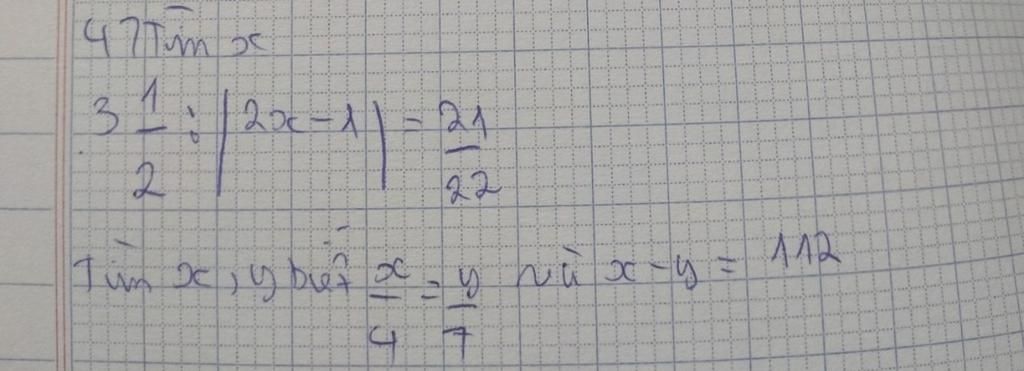 47 Tìm x
3 1/2 : |2x - 1| = 21/22
Tìm x, y biết x/4 = y/7 và x - y = 112